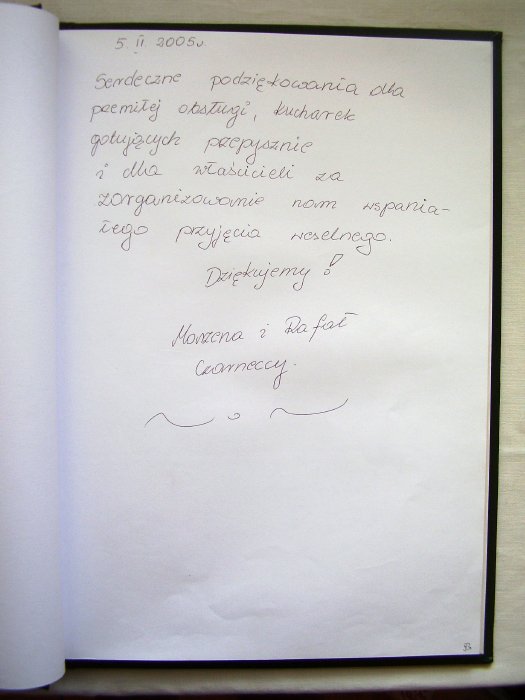 5. II. 2005r.
Serdeczne podziękowania dla
przemiłej obsługi, kucharek
gotujących przepysznie
i dla właścicieli za
zorganizowanie nam wspania-
łego przyjęcia weselnego.
Dziękujemy!
Marzena i Rafał
Czarneccy.